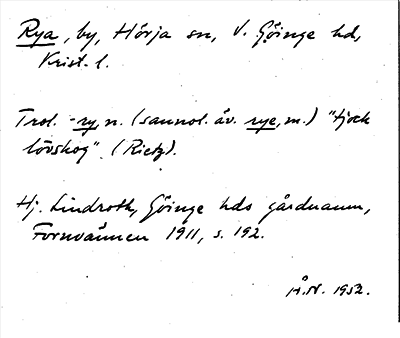 Rya, by, Hörja sn, V. Göinge hd,
Krist. l.
Trol. -ry, n. (sannol. äv. rye, m.) "tjock
lövskog". (Rietz).
Hj. Lindroth, Göinge hds gårdnamn,
Fornvännen 1911, s. 192.
Å.N. 1952.